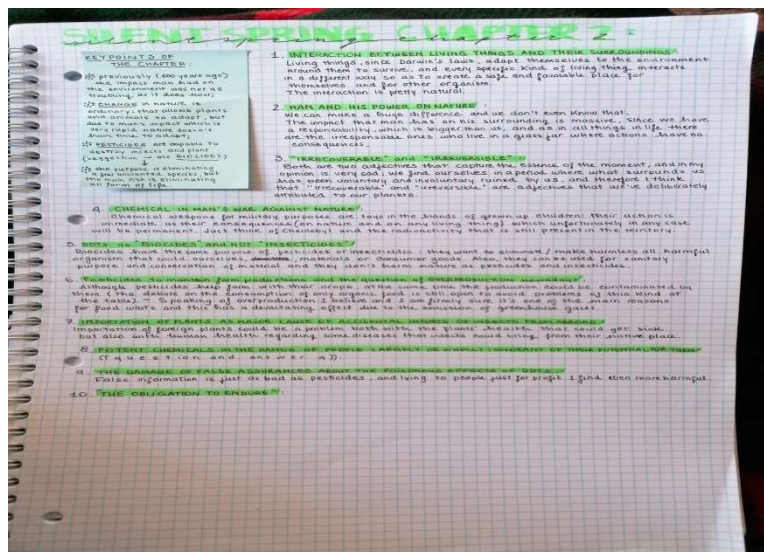 SILENT SPRING CHAPTER 2:
KEY POINTS OF
THE CHAPTER:
previously (100 years ago)
the impact man had on
the environment was not as
troubling, as it does now;
CHANGE in nature is
ordinary: that allows plants
and animals to adapt, but
due to man's impact which is
very rapid nature doesn't
have time to adapt;
PESTICIDES are capable to
destroy insects and plant
(suggestion → use BIOCIDES)
the purpose is eliminating
a few unwanted species, but
the main risk is eliminating
all form of life
1. "INTERACTION BETWEEN LIVING THINGS AND THEIR SURROUNDINGS"
Living things, since Darwin's laws, adapt themselves to the environment
around them to survive, and every specific kind of living thing interacts
in a different way so as to create a safe and favourable place for
themselves and for other organism.
The interaction is pretty natural.
2. MAN AND HIS POWER ON NATURE:
We can make a huge difference and we don't even know that.
The impact that man has on his surrounding is massive. Since we have
a responsability, which is bigger than us, and as in all things in life there
are the irresponsable ones who live in a glass jar where actions have no
consequences.
3. "IRRECOVERABLE" and "IRREVERSIBLE":
Both are two adjectives that capture the essence of the moment, and in my
opinion is very sad; we find ourselves in a period where what surrounds us
has been voluntary and involuntary ruined by us, and therefore I think
that "irrecoverable" and "irreversible" are adjectives that we've deliberately
attributed to our planets.
4. CHEMICAL IN MAN'S WAR AGAINST NATURE:
Chemical weapons for military purposes are toys in the hands of grown up children: their action is
immediate as their consequences (on nature and on any living thing) which unfortunately in any case
will be permanent. Just think of Chernobyl and the radioactivity that is still present in the territory.
5. DDTs as "BIOCIDES" and NOT "INSECTICIDES":
Biocides have the same purpose of pesticides or insecticides: they want to eliminate/make harmless all harmful
organism that could ourselves, materials or consumer goods. Also, they can be used for sanitary
purpose and conservation of material and they don't harm nature as pesticides and insecticides.
6. Pesticides to maintain farm productions and the question of OVERPRODUCTION nowadays:
Although pesticides help farm with their crops, at the same time the productions could be contaminated by
them (the debate on the consumption of only organic food is still open to avoid problems of this kind at
the table) → Speaking of overproduction I believe and I am firmly sure it's one of the main reasons
for food waste and this has a devastating effect due to the emission of greenhouse gases.
7. IMPORTATION OF PLANTS AS MAJOR CAUSE OF ACCIDENTAL IMPORT OF INSECTS FROM ABROAD:
Importation of foreign plants could be a problem both with the plants' health that could get sick
but also with human health regarding some diseases that insects could bring from their native place.
8. POTENT CHEMICALS IN THE HANDS OF PEOPLE LARGELY OR WHOLLY IGNORANT OF THEIR POTENTIAL FOR HARM
((question and answer 4)).
9. THE DAMAGE OF FALSE ASSURANCES ABOUT THE POISONOUS EFFECTS OF DDTs:
False information is just as bad as pesticides, and lying to people just for profit I find even more harmful.
10. "THE OBLIGATION TO ENDURE":